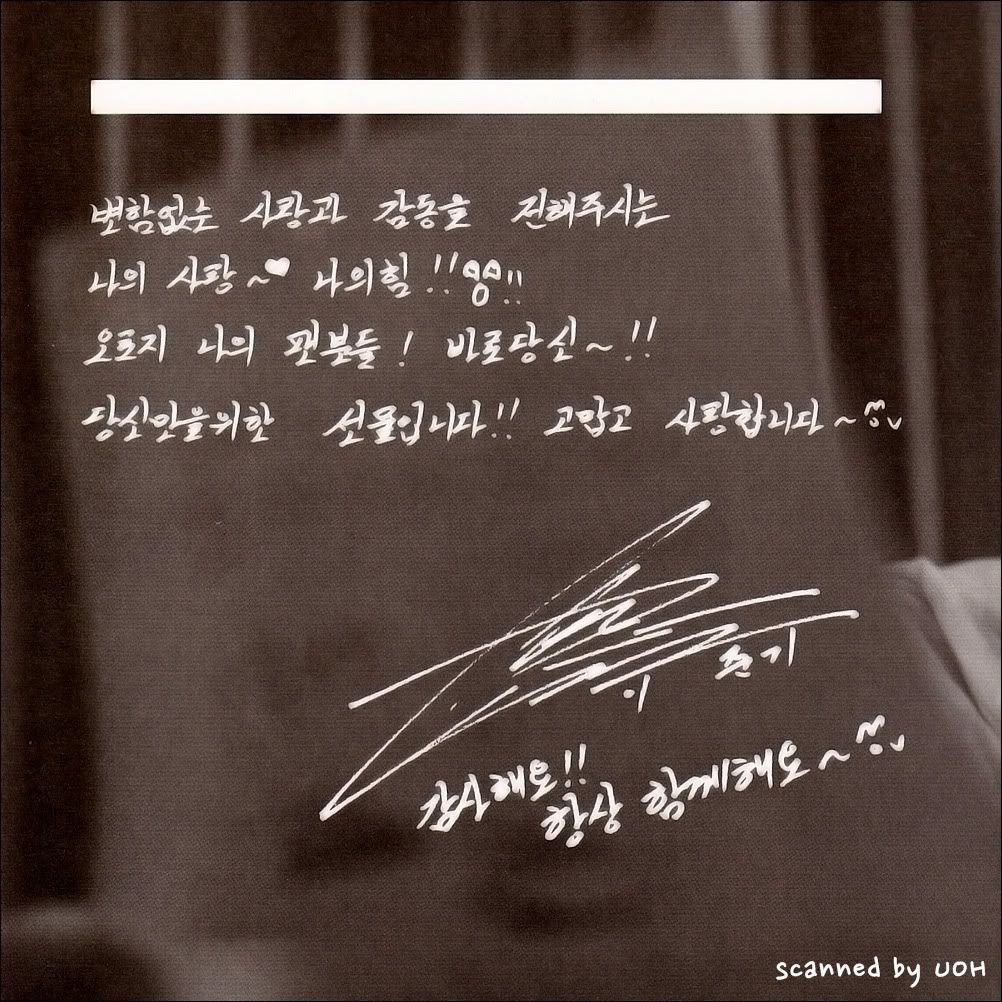 변함없는 사랑과 감동을 전해주시는
나의 사랑~♥ 나의힘!!㉻!!
오로지 나의 팬분들! 바로당신~!!
당신만을위한 선물입니다!! 고맙고 사랑합니다~^^
이 준기
감사해요!!
항상 함께해요~^^
scanned by UOH